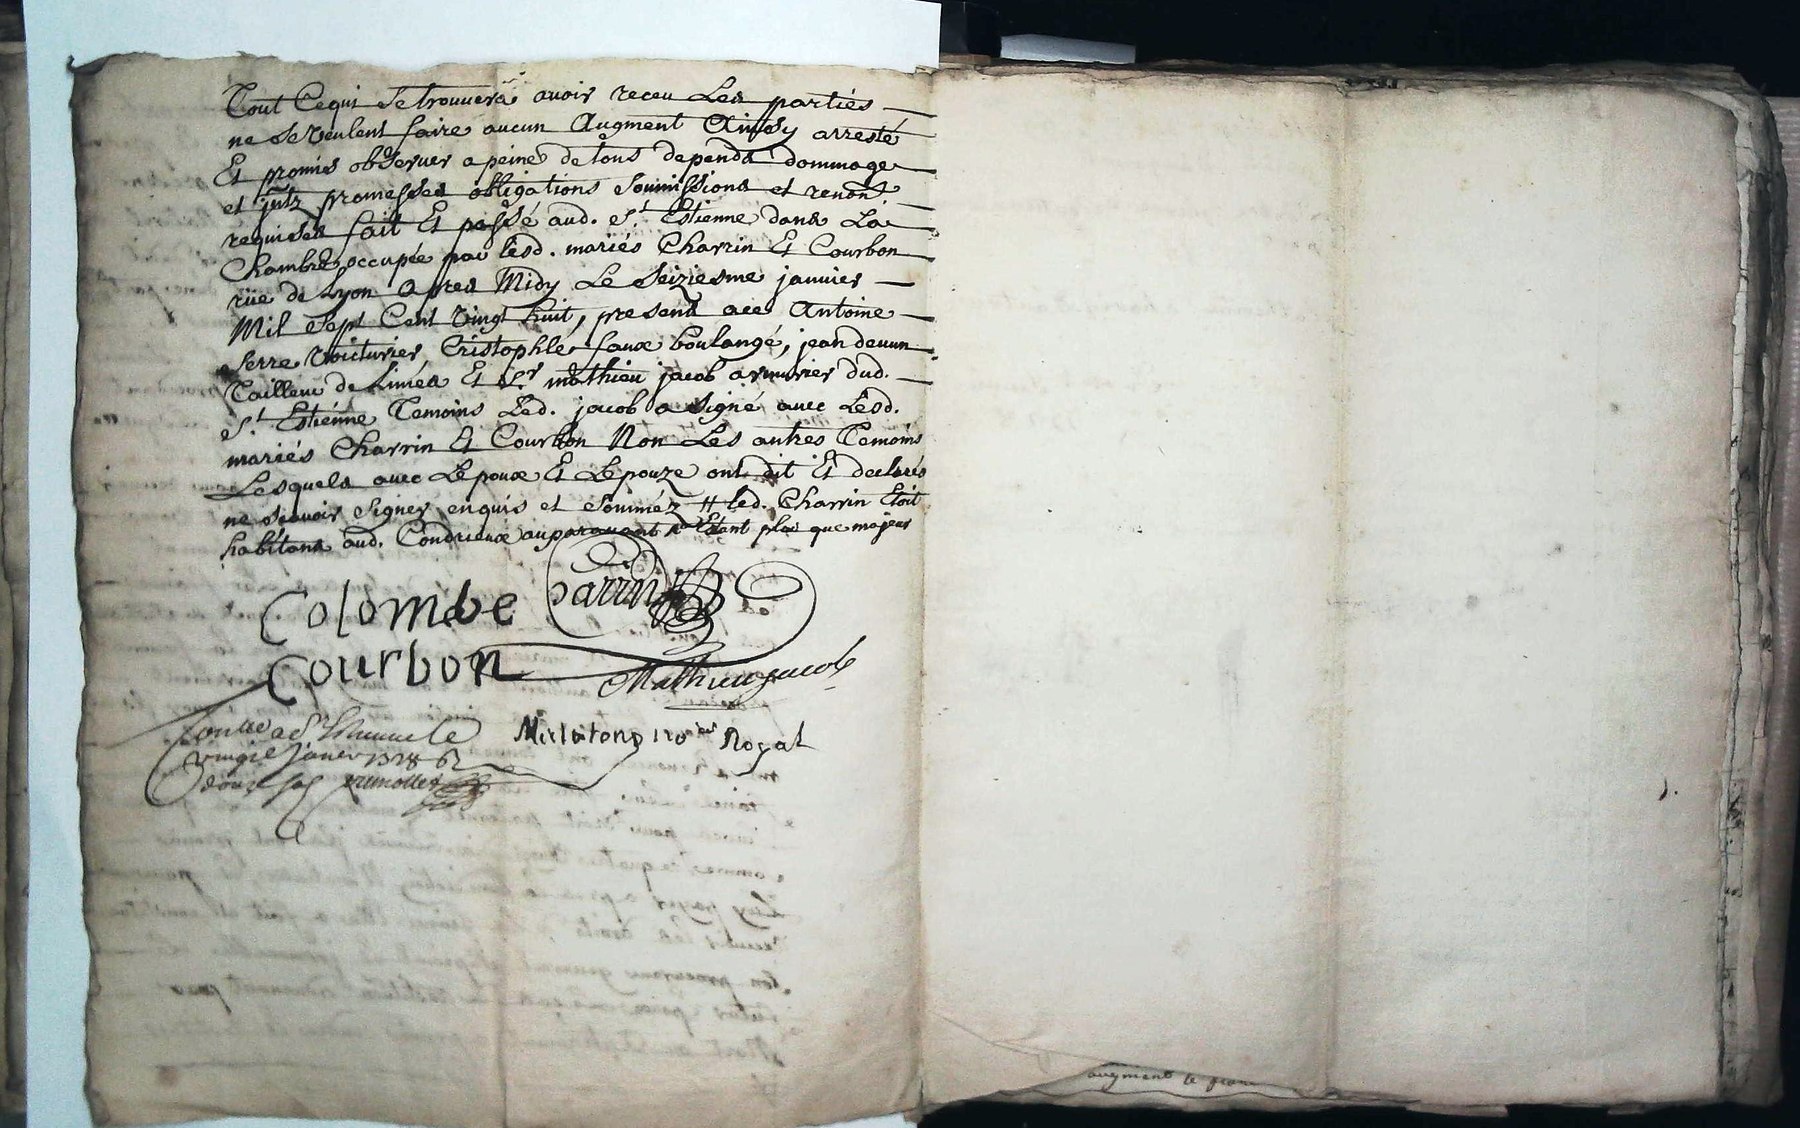 Tout Cequi Setrouvera avoir receu Les parties
ne Seveulent faire aucun Augment Ainsy arresté
Et promis observer a peine de tous depends dommage
et jntz promesses obligations Soumissions et renon.
requises fait Et passé aud. St. Estienne dans La
Chambre occupée par lesd. mariés Charrin Et Courbon
rüe de Lyon Apres Midy Le Seiziesme janvier
Mil Sept Cent Vingt huit, presens a ce Antoine
Serre Voiturier Cristophle faux boulangé, jean devun
Tailleur de Limes Et Sr mathieu jacob armurier dud.
St. Estienne Temoins Led. jacob a Signé avec Lesd.
mariés Charrin Et Courbon Non Les autres Temoins
Lesquels avec Lepoux Et Lepouze ont dit Et declarés
ne Scavoir Signer enquis et Sommez # led. Charrin Etoit
habitans aud. Condrieux auparavant Etant plus que majeur
Colombe Charrin
Courbon
Mathieu jacob
Royal
janvier 1728
augment le